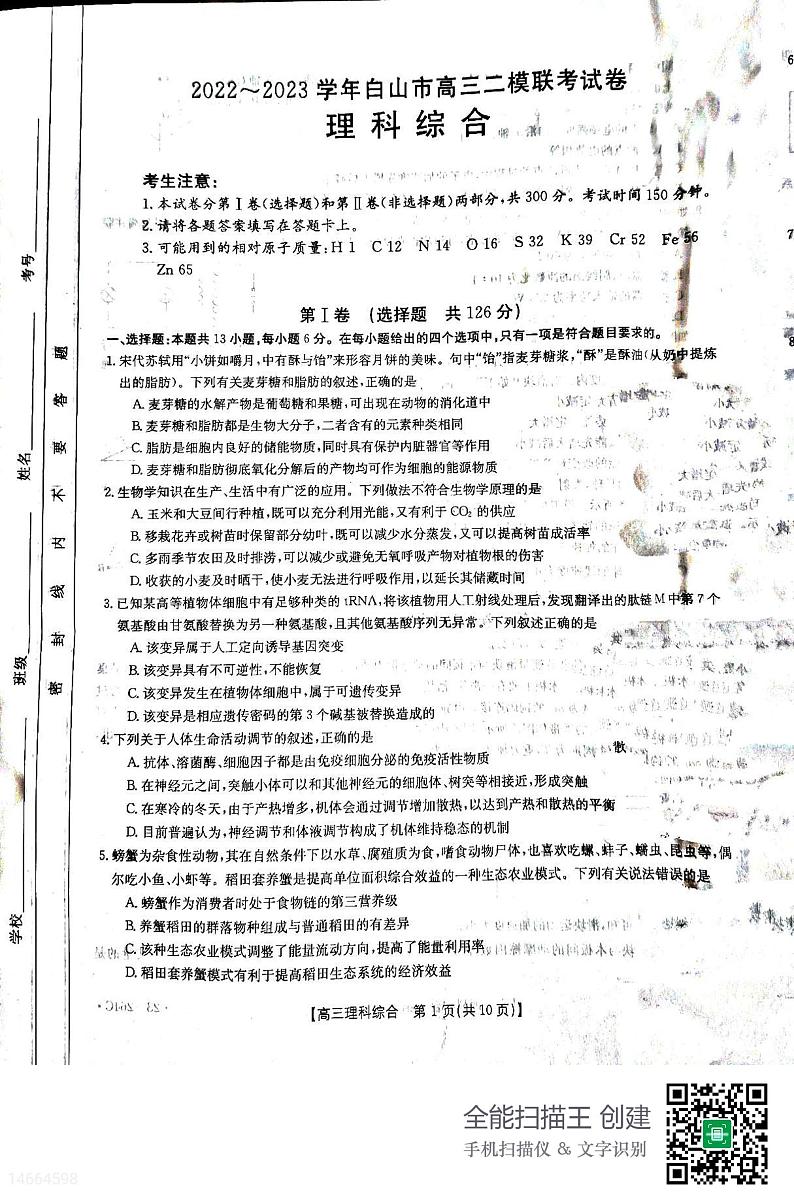 2022～2023学年白山市高三二模联考试卷
理科综合
考生注意:
1.本试卷分第Ⅰ卷(选择题)和第Ⅱ卷(非选择题)两部分,共300分。考试时间150分钟。
2.请将各题答案填写在答题卡上。
3.可能用到的相对原子质量:H 1 C 12 N 14 O 16 S 32 K 39 Cr 52 Fe 56
Zn 65
第Ⅰ卷 (选择题 共126分)
一、选择题:本题共13小题,每小题6分。在每小题给出的四个选项中,只有一项是符合题目要求的。
1.宋代苏轼用“小饼如嚼月,中有酥与饴”来形容月饼的美味。句中“饴”指麦芽糖浆,“酥”是酥油(从奶中提炼
出的脂肪)。下列有关麦芽糖和脂肪的叙述,正确的是
A.麦芽糖的水解产物是葡萄糖和果糖,可出现在动物的消化道中
B.麦芽糖和脂肪都是生物大分子,二者含有的元素种类相同
C.脂肪是细胞内良好的储能物质,同时具有保护内脏器官等作用
D.麦芽糖和脂肪彻底氧化分解后的产物均可作为细胞的能源物质
2.生物学知识在生产、生活中有广泛的应用。下列做法不符合生物学原理的是
A.玉米和大豆间行种植,既可以充分利用光能,又有利于CO₂的供应
B.移栽花卉或树苗时保留部分幼叶,既可以减少水分蒸发,又可以提高树苗成活率
C.多雨季节农田及时排涝,可以减少或避免无氧呼吸产物对植物根的伤害
D.收获的小麦及时晒干,使小麦无法进行呼吸作用,以延长其储藏时间
3.已知某高等植物体细胞中有足够种类的tRNA,将该植物用人工射线处理后,发现翻译出的肽链M中第7个
氨基酸由甘氨酸替换为另一种氨基酸,且其他氨基酸序列无异常。下列叙述正确的是
A.该变异属于人工定向诱导基因突变
B.该变异具有不可逆性,不能恢复
C.该变异发生在植物体细胞中,属于可遗传变异
D.该变异是相应遗传密码的第3个碱基被替换造成的
4.下列关于人体生命活动调节的叙述,正确的是
A.抗体、溶菌酶、细胞因子都是由免疫细胞分泌的免疫活性物质
B.在神经元之间,突触小体可以和其他神经元的细胞体、树突等相接近,形成突触
C.在寒冷的冬天,由于产热增多,机体会通过调节增加散热,以达到产热和散热的平衡
D.目前普遍认为,神经调节和体液调节构成了机体维持稳态的机制
5.螃蟹为杂食性动物,其在自然条件下以水草、腐殖质为食,嗜食动物尸体,也喜欢吃螺、蚌子、蠕虫、昆虫等,偶
尔吃小鱼、小虾等。稻田套养蟹是提高单位面积综合效益的一种生态农业模式。下列有关说法错误的是
A.螃蟹作为消费者时处于食物链的第三营养级
B.养蟹稻田的群落物种组成与普通稻田的有差异
C.该种生态农业模式调整了能量流动方向,提高了能量利用率
D.稻田套养蟹模式有利于提高稻田生态系统的经济效益
【高三理科综合 第1页(共10页)】
学校
班级
姓名
考号
密封线内不要答题
全能扫描王 创建
手机扫描仪 & 文字识别
14664598